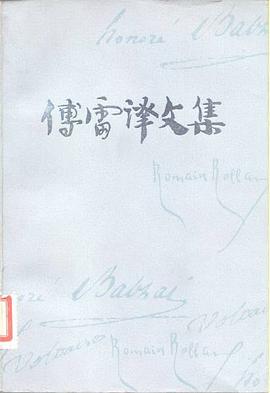 honoré de Balzac
傅雷译文集
Romain Rolland
honoré de Balzac
Voltaire
Voltaire
Romain Rolland
ho